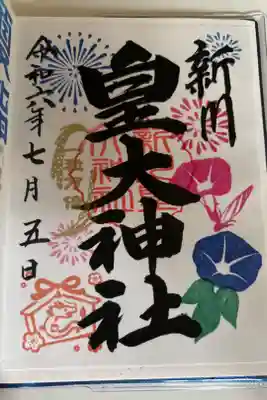 新川
皇大神社
令和六年七月五日